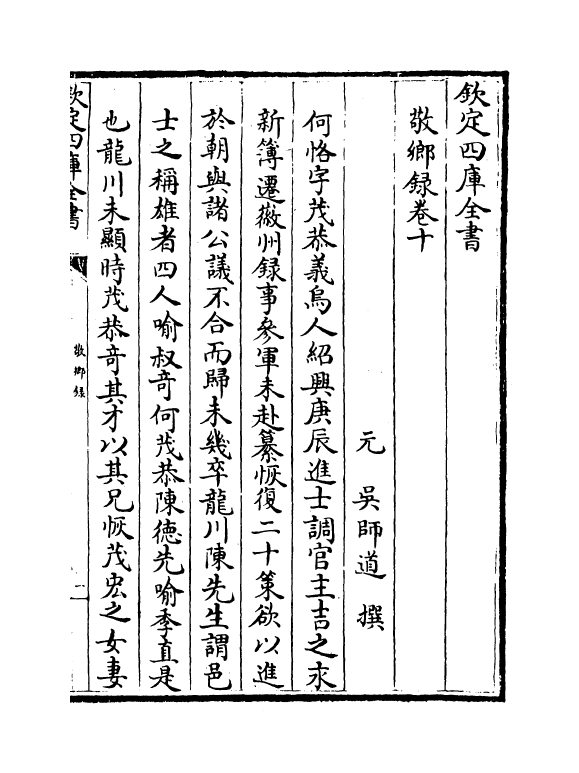 欽定四庫全書
敬鄉録卷十
元 吳師道 撰
何恪字茂恭義烏人紹興庚辰進士調官主吉之永
新簿遷徽州録事參軍未赴纂恢復二十策欲以進
於朝與諸公議不合而歸未幾卒龍川陳先生謂邑
士之稱雄者四人喻叔竒何茂恭陳德先喻季直是
也龍川未顯時茂恭竒其才以其兄恢茂宏之女妻
欽定四庫全書
敬鄉録